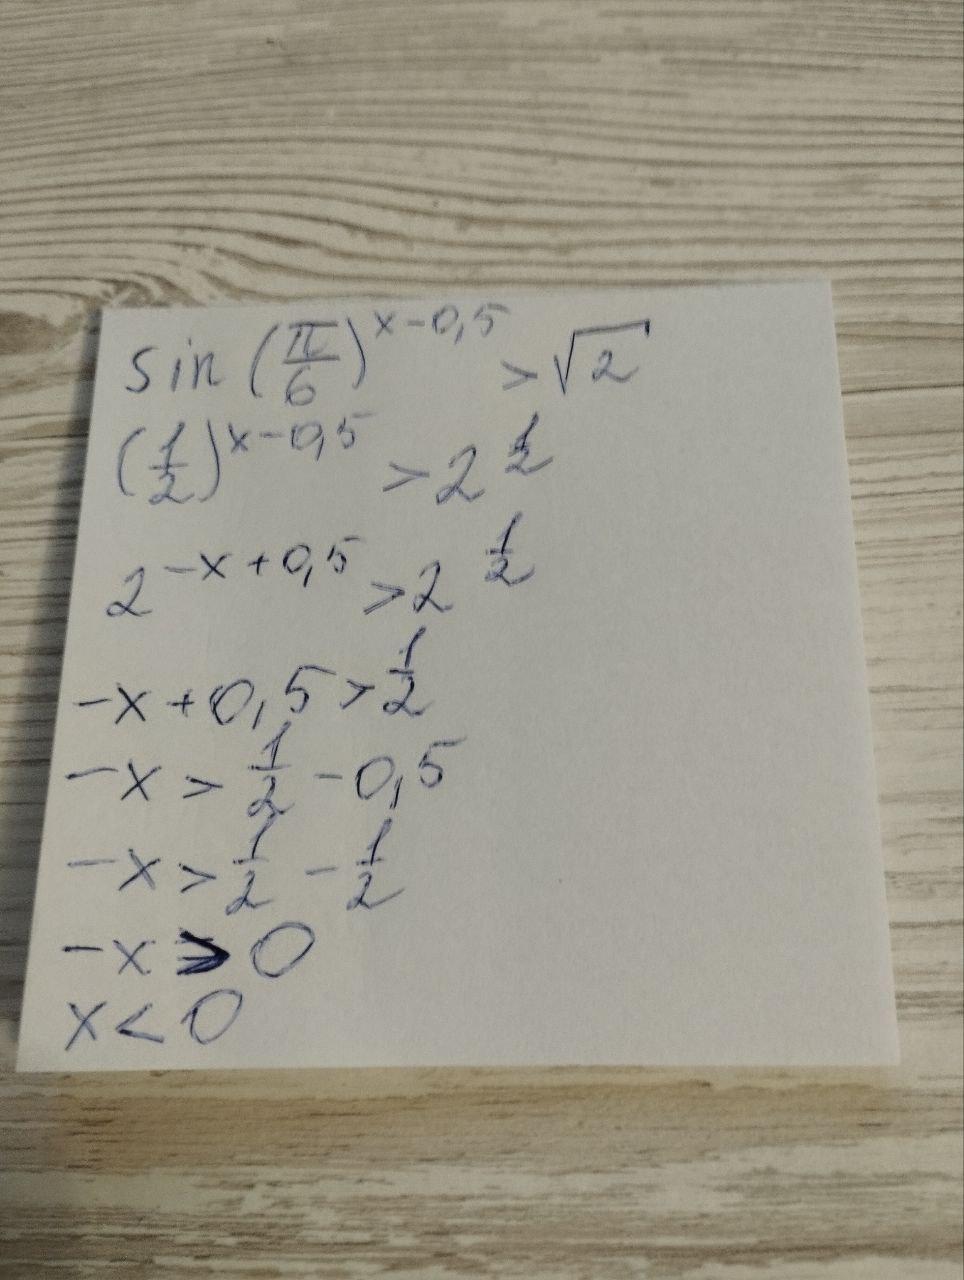 sin (π/6)^(x-0,5) > √2
(1/2)^(x-0,5) > 2^(1/2)
2^(-x+0,5) > 2^(1/2)
-x+0,5 > 1/2
-x > 1/2 - 0,5
-x > 1/2 - 1/2
-x > 0
x < 0